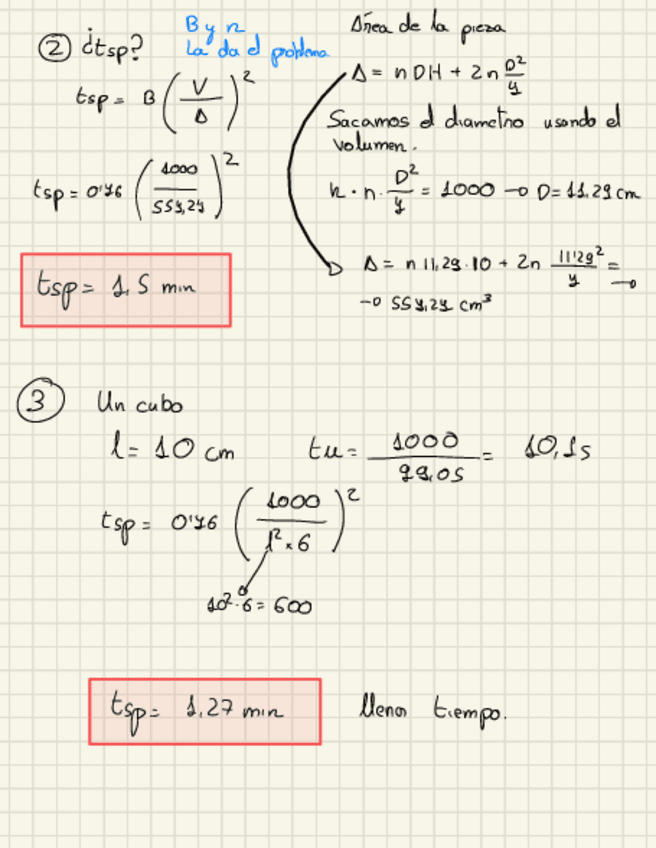 ② ¿tsp?
B y n
La da el problema
tsp = B (V/A)²
tsp = 0'46 (1000/554,24)²
tsp = 1,5 min
Área de la pieza
A = π D H + 2π D²/4
Sacamos el diametro usando el
volumen.
h · π · D²/4 = 1000 → D = 11.29 cm
A = π 11,29 · 10 + 2π 11'29²/4 = →
→ 554,24 cm³
③ Un cubo
l = 10 cm
tu = 1000/99,05 = 10,1s
tsp = 0'46 (1000/l² × 6)²
10² · 6 = 600
tsp = 1,27 min
Menor tiempo.